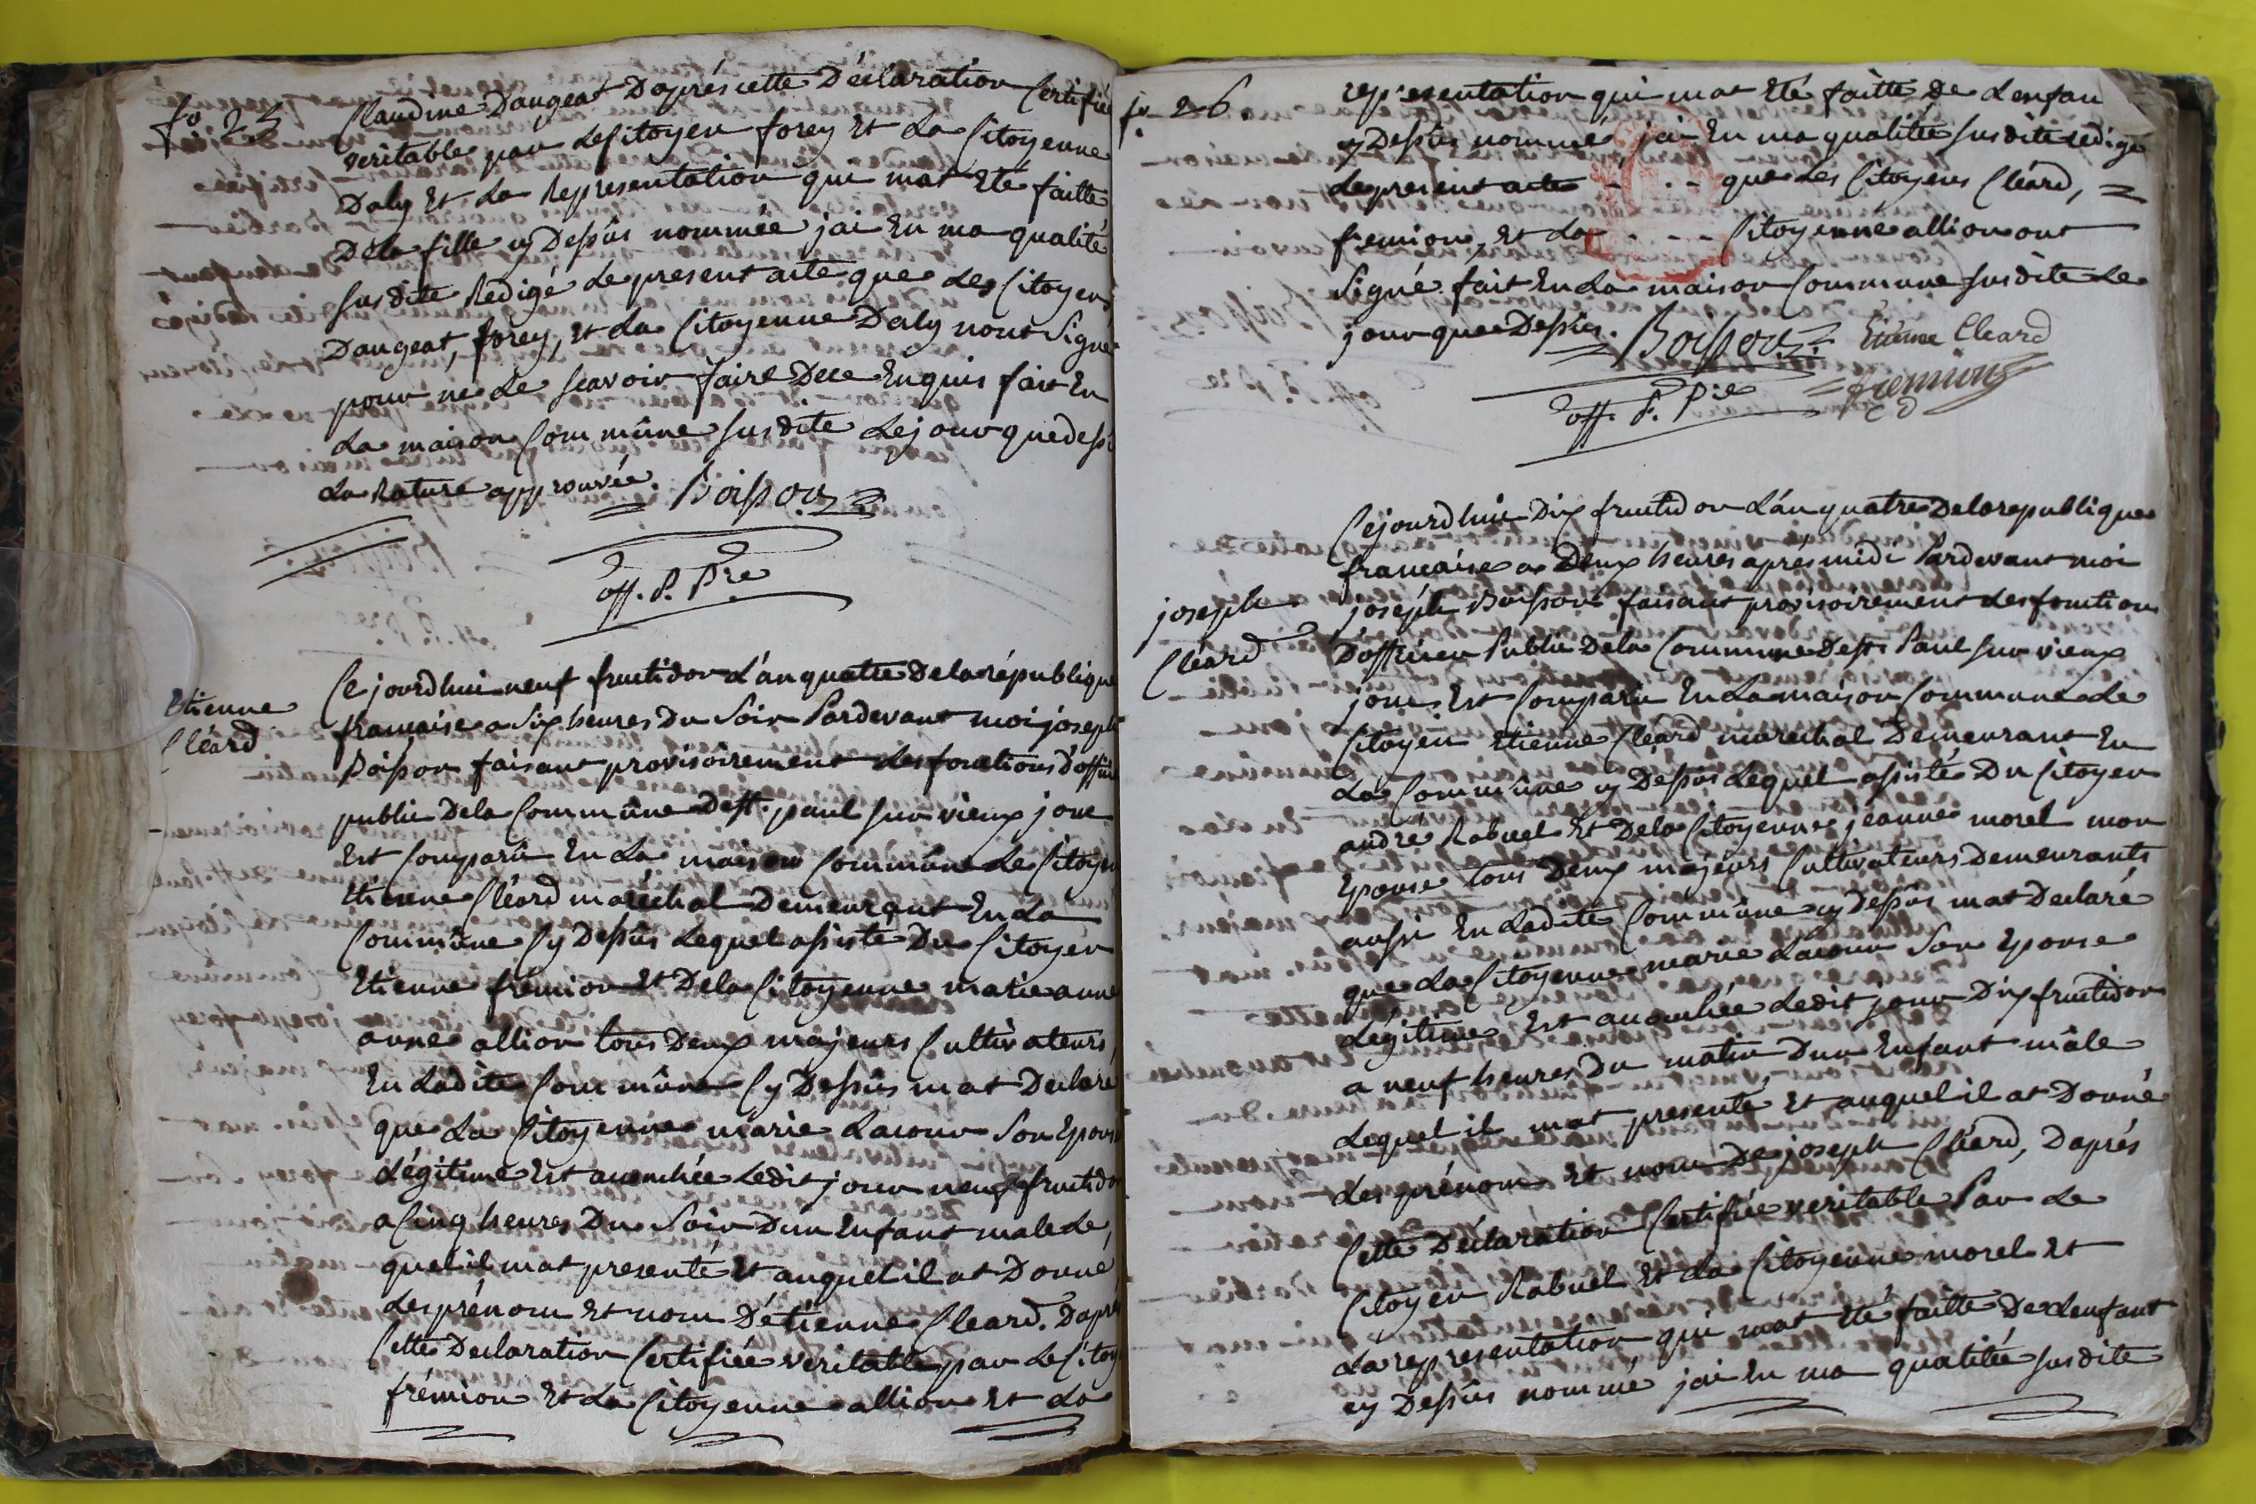 fo 25
Claudine Daugeat Daprés cette Déclaration Certifiée
veritable par Le Citoyen forey Et La Citoyenne
Daly Et La Representation qui mat Eté faitte
De la fille cy Dessus nommée jai En ma qualité
susdite Redigé Le present acte que Les Citoyens
Daugeat, forey, Et La Citoyenne Daly nont Signé
pour ne Le scavoir faire De ce Enquis fait En
La maison Commûne susdite Le jour que dessus
La Rature approuvée. Boisson
off. P. Pre
Etienne
Cléard
Ce jourdhui neuf fructidor L'an quatre De la république
francaise a Six heures Du Soir Pardevant moi joseph
Boisson faisant provisoirement Les fonctions d'officier
public De la Commûne De st. paul sur vieux jone
Est Comparû En La maison Commûne Le Citoyen
Etienne Cléard maréchal Demeurant En La
Commûne Cy Dessus Lequel assisté Du Citoyen
Etienne frémion Et De la Citoyenne marie anne
anne allion tous Deux majeurs Cultivateurs,
En Ladite Commûne Cy Dessus mat Declaré
que La Citoyenne marie Lacour Son Epouse
Légitime Est accouchée Ledit jour neuf fructidor
a Cinq heures Du Soir Dun Enfant male Le,
quel il mat presenté Et auquel il at Donné
Les prénom Et nom D'étienne Cleard. Daprés
Cette Declaration Certifiée veritable par Le Citoyen
frémion Et La Citoyenne allion Et La
fo 26.
representation qui mat Eté faitte De Lenfan
cy Dessus nommé, jai En ma qualitée susdite rédigé
Le present acte - . - - que Les Citoyens Cléard,
fremion, Et La - . - - Citoyenne allion ont
Signé fait En La maison Commune susdite Le
jour que Dessus. Boisson Etienne Cleard
off. P. Pre fremion
joseph
Cléard
Cejourdhui Dix fructidor L'an quatre De la republique
francaise a Deux heures aprés midi Pardevant moi
joséph Boisson faisant provisoirement Les fonctions
D'officier Public De la Commune De st. Paul sur vieux
jonc Est Comparû En La maison Commune Le
Citoyen Etienne Cléard marechal Demeurant En
La Commûne cy Dessus Lequel assisté Du Citoyen
andré Rabuel Et De la Citoyenne jeanne morel mon
Epouse tous Deux majeurs Cultivateurs Demeurants
aussi En Ladite Commûne cy Dessus mat Declaré
que La Citoyenne marie Lacour Son Epouse
Légitime Est accouchée Ledit jour Dix fructidor
a neuf heures Du matin Dun Enfant mâle
Lequel il mat presenté, Et auquel il at Donné
Les prénom Et nom De joseph Cléard, Daprés
Cette Déclaration Certifiée veritable Par Le
Citoyen Rabuel Et La Citoyenne morel Et
La representation qui mat Eté faitte De Lenfant
cy Dessus nommé jai En ma qualitée susdite